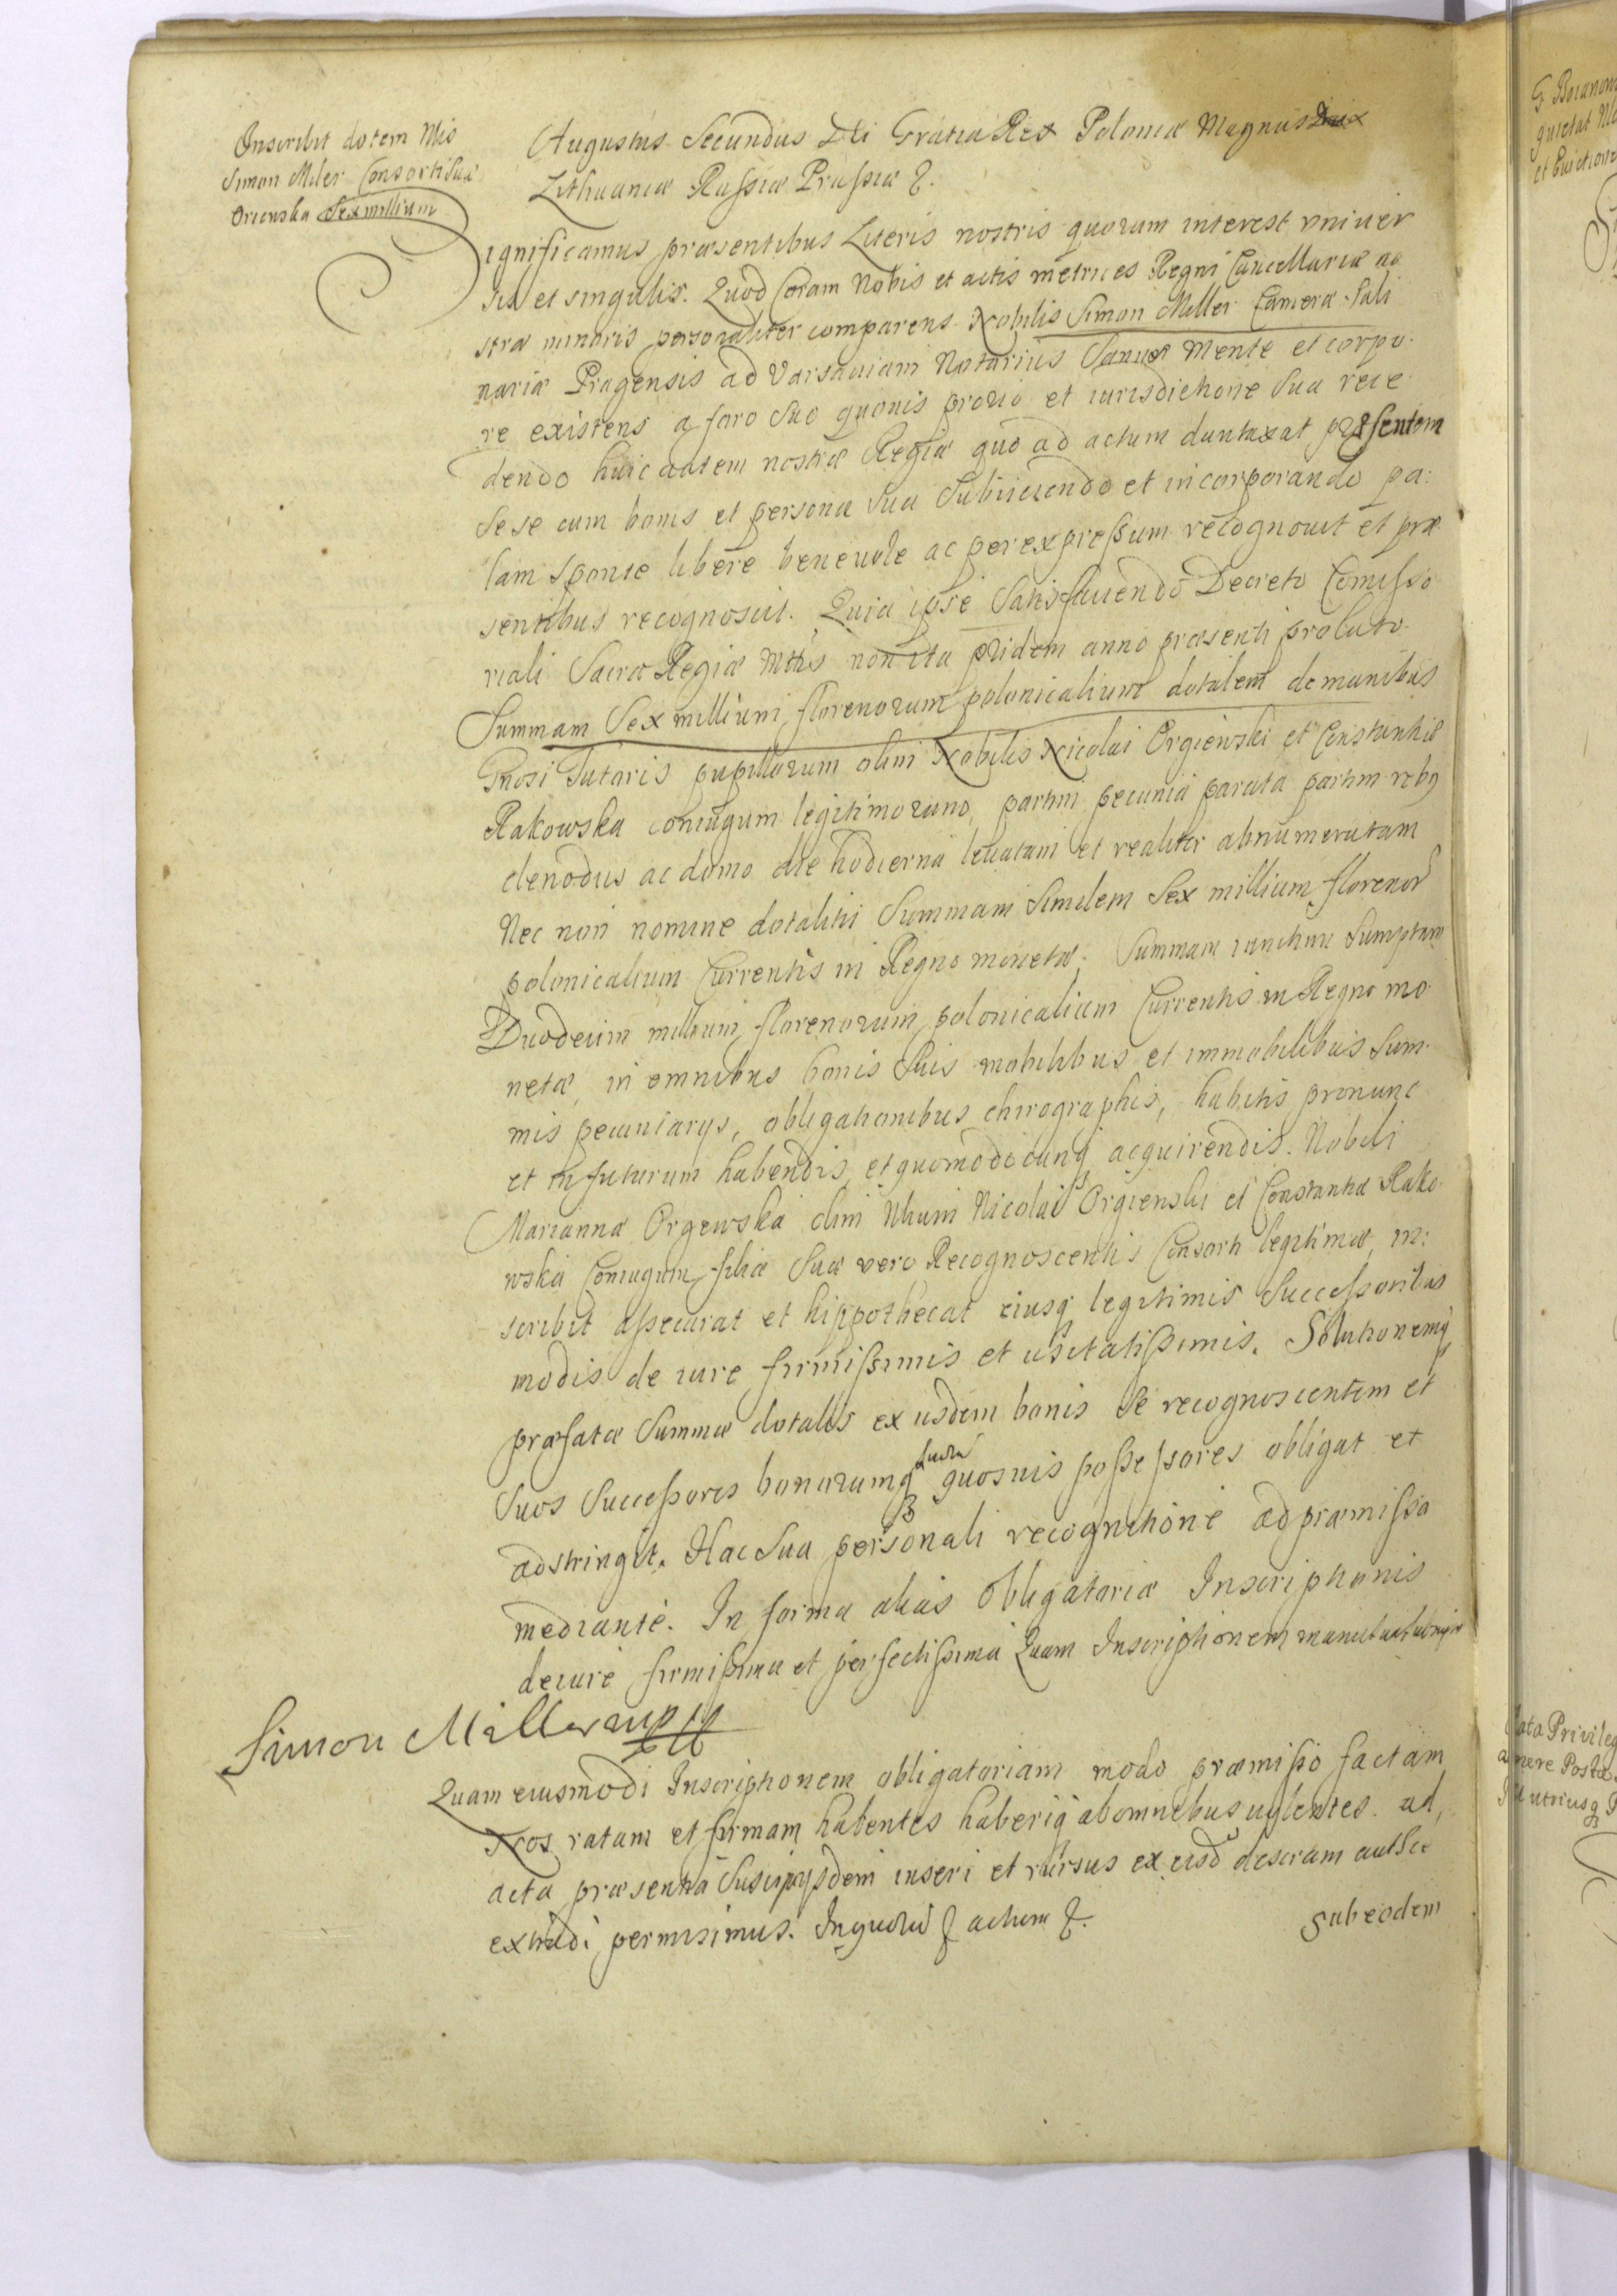 Inscribit dotem Nlis
Simon Miler Consorti Suæ
Oriewska Sex millium
Augustus Secundus Dei Gratia Rex Poloniæ Magnus Dux
Lithuaniæ Russiæ Prussiæ &.
Significamus præsentibus Literis nostris quorum interest vniuer
sis et singulis. Quod Coram Nobis et actis metrices Regni Cancellariæ no
stræ minoris personaliter comparens Nobilis Simon Miller Cameræ Sali
nariæ Pragensis ad Varsauiam Notarius Sanus mente et corpo
re existens a foro suo quouis proprio et iurisdictione sua rece
dendo huic autem nostræ Regiæ quo ad actum duntaxat præsentem
sese cum bonis et persona sua subiiciendo et incorporando pa:
lam sponte libere beneuole ac per expressum recognouit et præ
sentibus recognoscit. Quia ipse Satisfaciendo Decreto Comisso
riali Sacræ Regiæ Mttis non ita pridem anno præsenti prolato
Summam Sex millium florenorum polonicalium dotalem de manibus
Gnosi Tutoris pupillorum olim Nobilis Nicolai Orgiewski et Constantiæ
Rakowska coniugum legitimorum, partim pecunia parata partim rebq
clenodiis ac domo die hodierna leuatam et realiter abnumeratam
Nec non nomine dotalitii Summam similem Sex millium floreno
polonicalium Currentis in Regno monetæ. Summam iunctim sumptam
Duodecim millium florenorum polonicalium Currentis in Regno mo
netæ, in omnibus bonis suis mobilibus et immobilibus sum
mis pecuniarys, obligationibus chirographis, habitis pronunc
et in futurum habendis, et quomodocunq acquirendis. Nobili
Marianna Orgewska olim Nicolai Orgiewski et Constantiæ Rako
wska Coniugum filiæ suæ vero Recognoscentis Consorti legitimæ, in:
scribit assecurat et hippothecat eiusq legitimis Successoribus
modis de iure firmissimis et usitatissimis. Solutionemq
præfatæ Summæ dotalis ex iisdem bonis se recognoscentem et
suos Successores bonorumq suorū quosuis possessores obligat et
adstringit. Hac sua personali recognitione ad præmissa
mediante. In forma alias Obligatoriæ Inscriptionis
de iure firmissima et perfectissima Quam Inscriptionem manu sua
Simon Miller mpp
Quam eiusmodi Inscriptionem obligatoriam modo præmisso factam
Nos ratam et firmam habentes haberiq ab omnibus uolentes ad
acta præsentia iisdem inseri et rursus ex eisd
extradi permisimus. In quorū & actum &.
Sub eodem